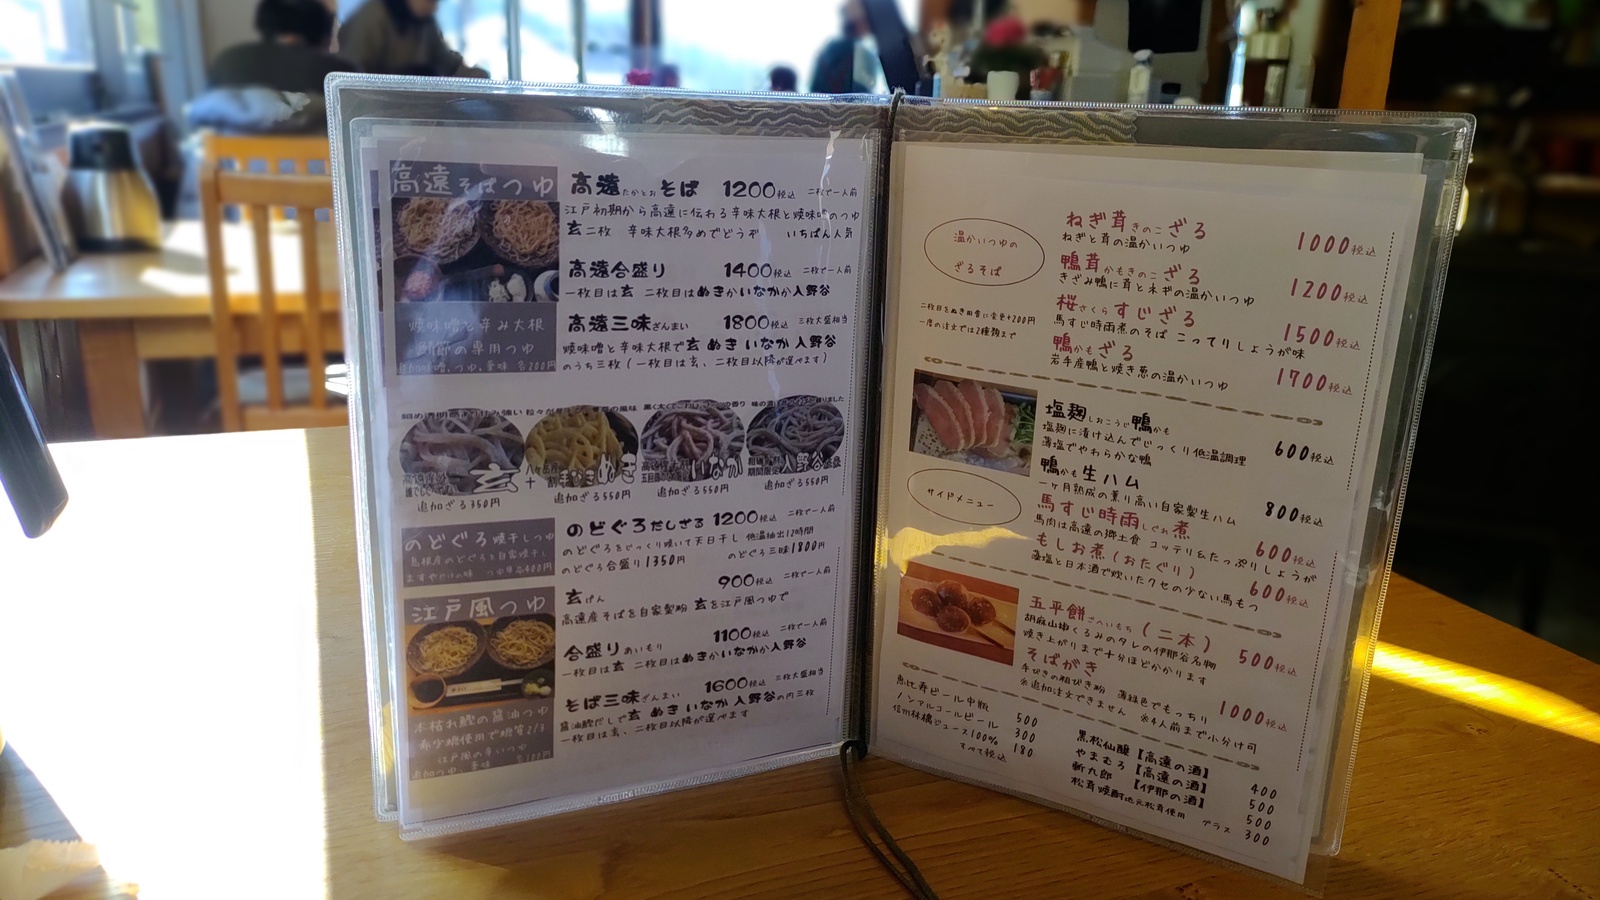 高遠そばつゆ
焼味噌と辛み大根
の専用つゆ
高遠たかとおそば 1200税込 二枚で一人前
江戸初期から高遠に伝わる辛味大根と焼味噌のつゆ
玄二枚 辛味大根多めでどうぞ いちばん人気
高遠合盛り 1400税込 二枚で一人前
一枚目は玄 二枚目はぬきかいなかか入野谷
高遠三味ざんまい 1800税込 三枚大盛相当
焼味噌と辛味大根で玄 ぬき いなか 入野谷
のうち三枚(一枚目は玄、二枚目以降が選べます)
玄
追加ざる350円
ぬき
追加ざる550円
いなか
追加ざる550円
入野谷
追加ざる550円
のどぐろ焼干しつゆ
島根産のどぐろを自家焼干し
のどぐろだしざる 1200税込 二枚で一人前
のどぐろをじっくり焼いて天日干し 低温抽出12時間
のどぐろ合盛り1350円 のどぐろ三味1800円
江戸風つゆ
本枯れ鰹の醤油つゆ
希少糖使用で糖質2/3
江戸風の辛いつゆ
900税込 二枚で一人前
玄げん
高遠産そばを自家製粉 玄を江戸風つゆで
合盛りあいもり 1100税込 二枚で一人前
一枚目は玄 二枚目はぬきかいなかか入野谷
そば三味ざんまい 1600税込 三枚大盛相当
醤油鰹だしで玄 ぬき いなか 入野谷の内三枚
一枚目は玄、二枚目以降が選べます
温かいつゆの
ざるそば
二枚目をぬき田舎に変更+200円
一度の注文では2種類まで
ねぎ茸きのこざる 1000税込
ねぎと茸の温かいつゆ
鴨茸かもきのこざる 1200税込
きざみ鴨に茸とネギの温かいつゆ
桜さくらすじざる 1500税込
馬すじ時雨煮のそば こってりしょうが味
鴨かもざる 1700税込
岩手産鴨と焼き葱の温かいつゆ
サイドメニュー
塩麹しおこうじ鴨かも 600税込
塩麹に漬け込んでじっくり低温調理
薄塩でやわらかな鴨
鴨かも生ハム 800税込
一ヶ月熟成の薫り高い自家製生ハム
馬すじ時雨しぐれ煮 600税込
馬肉は高遠の郷土食 コッテリ&たっぷりしょうが
もしお煮(おたぐり) 600税込
藻塩と日本酒で炊いたクセの少ない馬もつ
五平餅ごへいもち(二本) 500税込
胡麻山椒くるみのタレの伊那谷名物
焼き上がりまで十分ほどかかります
そばがき 1000税込
手びきの粗びき粉 薄緑色でもっちり
※追加注文できません ※4人前まで小分け可
恵比寿ビール中瓶 500
ノンアルコールビール 300
信州林檎ジュース100% 180
すべて税込
黒松仙醸【高遠の酒】 400
やまむろ【高遠の酒】 500
斬九郎 【伊那の酒】 500
松茸焼酎地元松茸使用 グラス 300